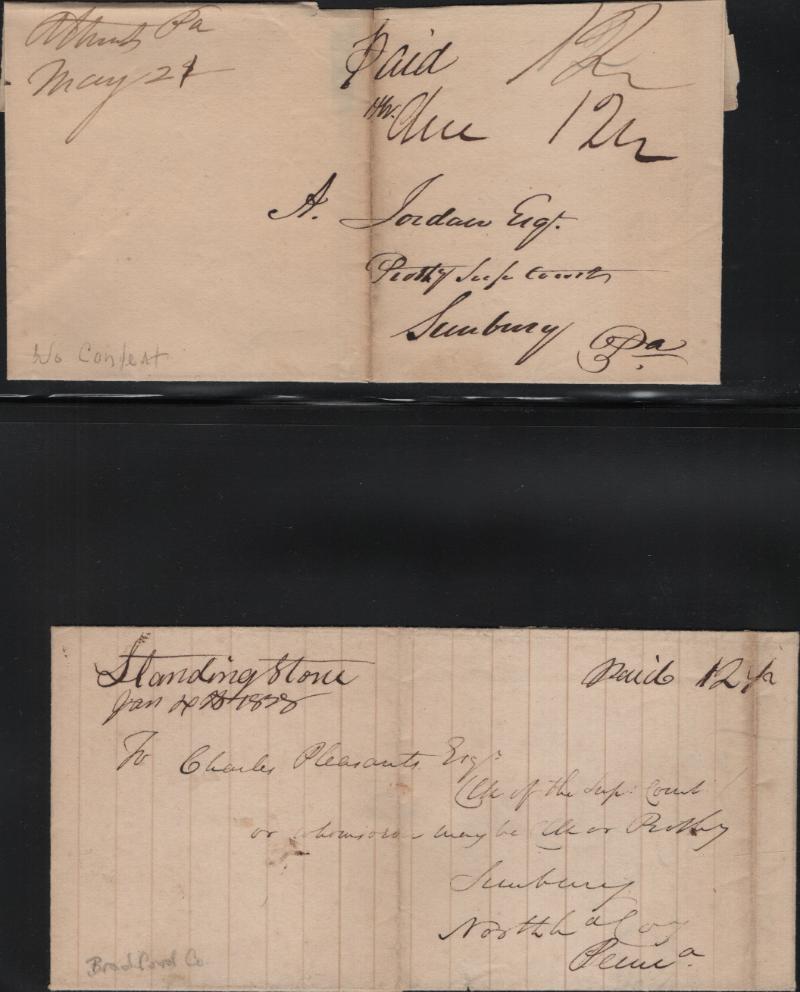 Athens Pa
May 21
Paid 12½
Due 12½
A. Jordan Esqr.
Prothy Sup Court
Sunbury Pa
No Content
Standing Stone
Jan 1828
Paid 12½
To Charles Pleasants Esqr
Clk of the Sup. Court
or whomsoever may be Clk or Prothy
Sunbury
Northd Coy
Penna.
Bradford Co